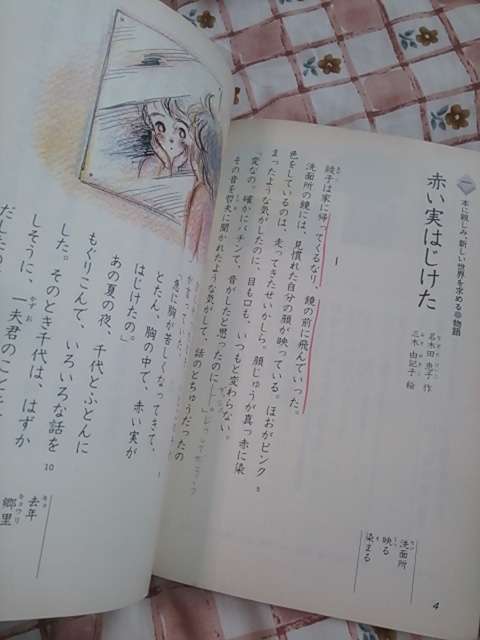 本に親しみ、新しい世界を求める 物語
赤い実はじけた
名木田 恵子 作
三木 由記子 絵
1
綾子は家に帰ってくるなり、鏡の前に飛んでいった。
洗面所の鏡には、見慣れた自分の顔が映っている。ほおがピンク
色をしているのは、走ってきたせいかしら。顔じゅうが真っ赤に染
まったような気がしたのに、目も口も、いつもと変わらない。
「変なの。確かにパチンて、音がしたと思ったのに――。」
その音を哲夫に聞かれたような気がして、話のとちゅうだったの
5
洗面所
映る
染まる
4
「急に胸が苦しくなってきて、
とたん、胸の中で、赤い実が
はじけたの。」
あの夏の夜、千代とふとんに
もぐりこんで、いろいろな話を
した。そのとき千代は、はずか
しそうに、一夫君のことを
10
去年
郷里